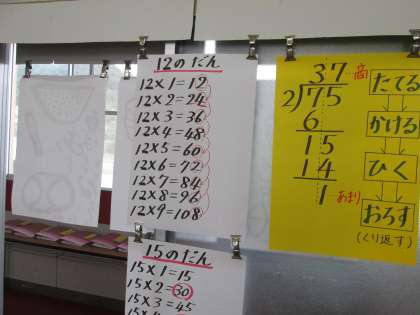 12のだん
12×1=12
12×2=24
12×3=36
12×4=48
12×5=60
12×6=72
12×7=84
12×8=96
12×9=108
15のだん
15×1=15
15×2=30
15×3=45
37 商
2)75
6
15
14
1 あまり
たてる
かける
ひく
おろす
(くり返す)